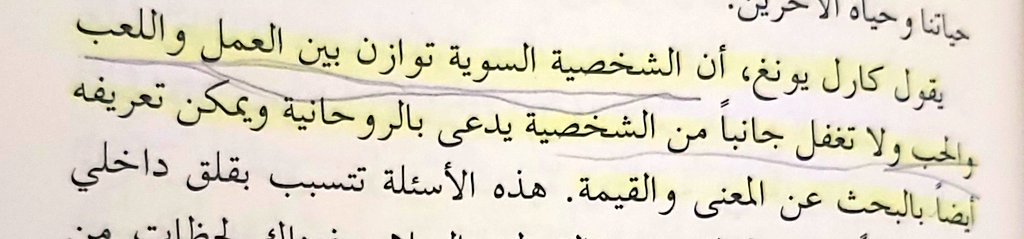 حياتنا وحياة الآخرين.
يقول كارل يونغ، أن الشخصية السوية توازن بين العمل واللعب
والحب ولا تغفل جانباً من الشخصية يدعى بالروحانية ويمكن تعريفه
أيضاً بالبحث عن المعنى والقيمة. هذه الأسئلة تتسبب بقلق داخلي
لحظات من